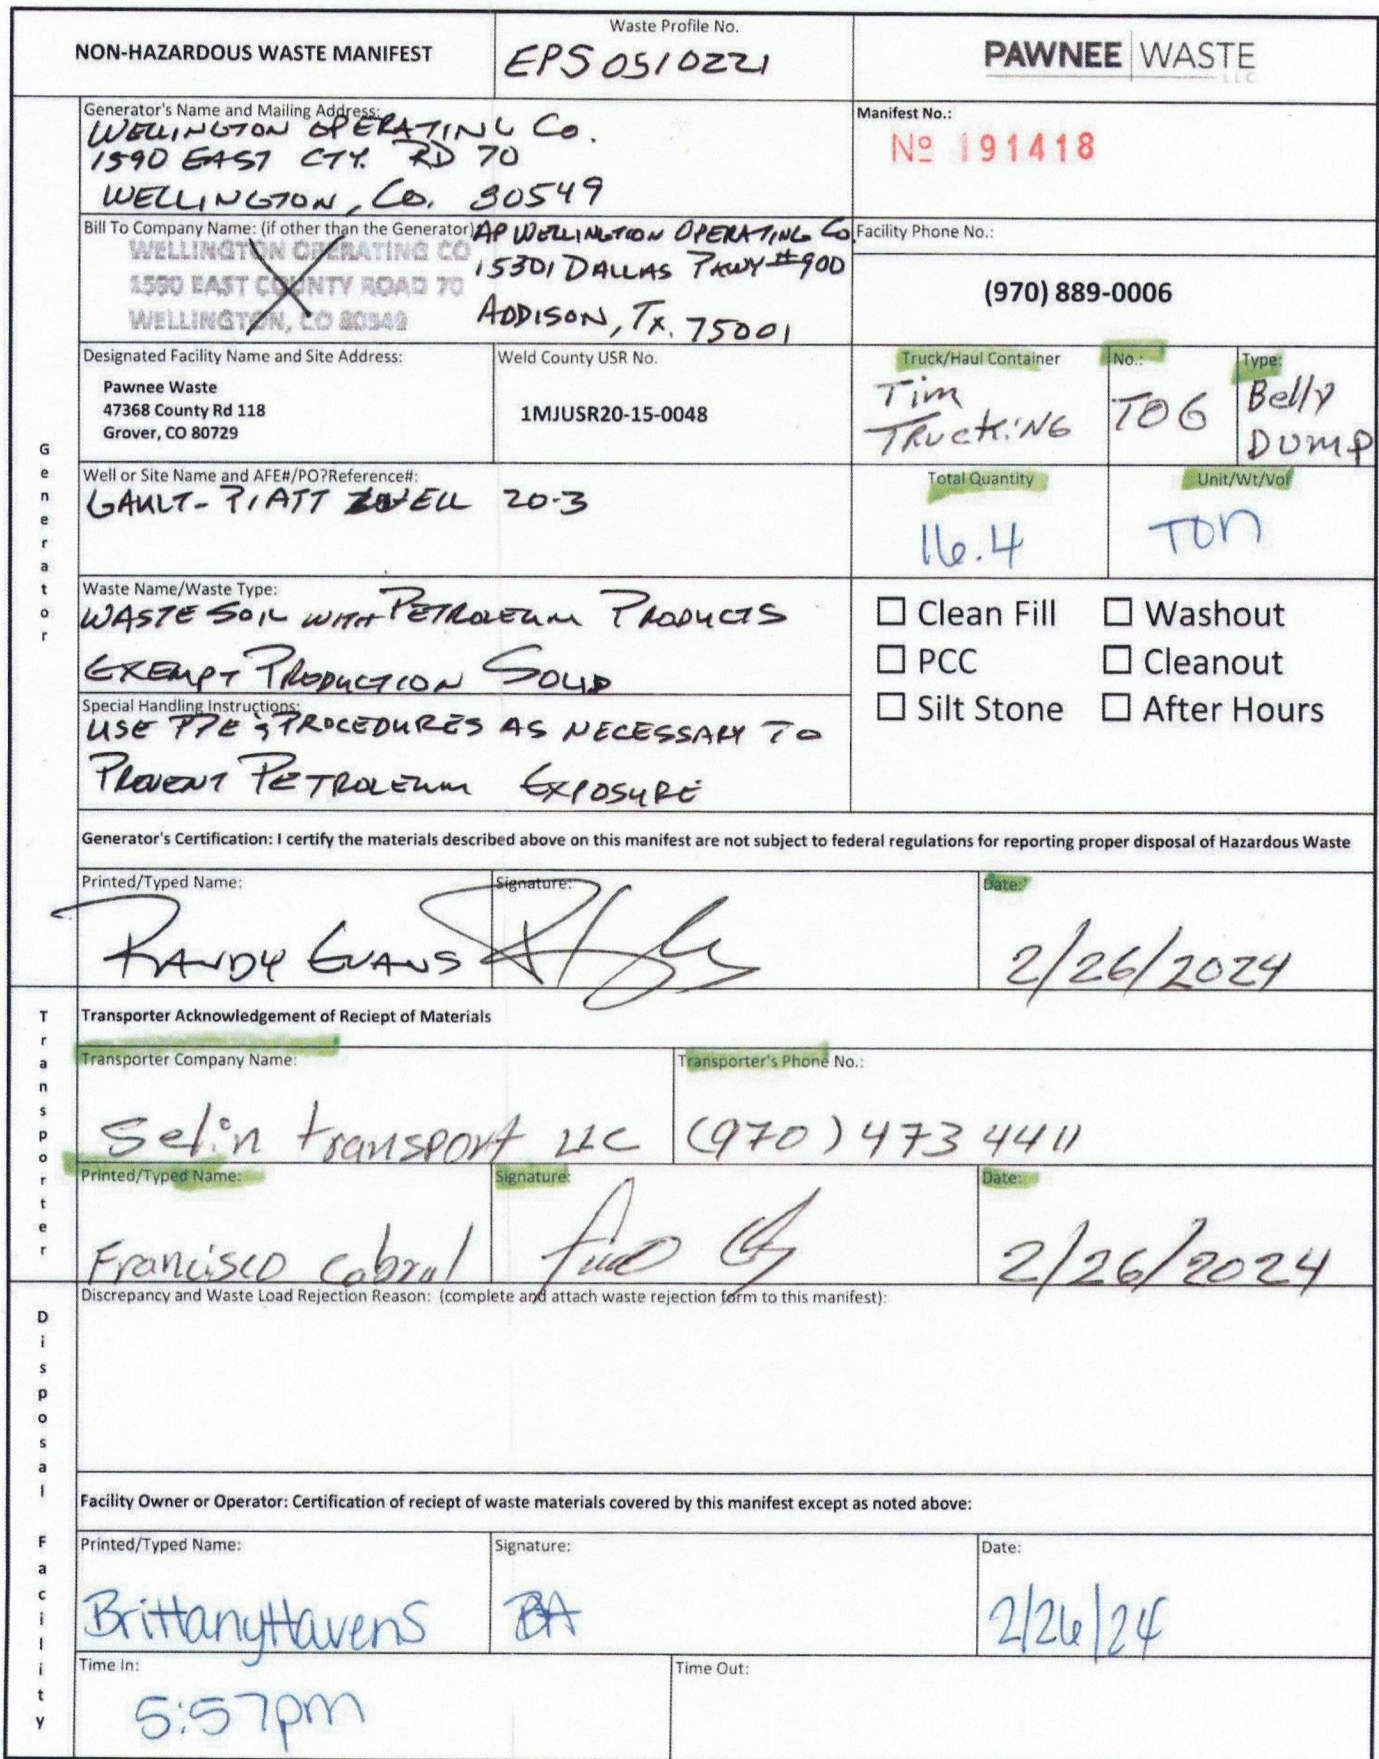 NON-HAZARDOUS WASTE MANIFEST
Waste Profile No.
EPS 0510221
PAWNEE WASTE
LLC
Generator's Name and Mailing Address:
WELLINGTON OPERATING Co.
1590 EAST CTY. RD 70
WELLINGTON, Co. 80549
Manifest No.:
Nº 191418
Bill To Company Name: (if other than the Generator)
WELLINGTON OPERATING CO
1590 EAST COUNTY ROAD 70
WELLINGTON, CO 80549
AP WELLINGTON OPERATING Co
15301 DALLAS PKWY #900
ADDISON, TX. 75001
Facility Phone No.:
(970) 889-0006
Designated Facility Name and Site Address:
Pawnee Waste
47368 County Rd 118
Grover, CO 80729
Weld County USR No.
1MJUSR20-15-0048
Truck/Haul Container
Tim
TRucKiNG
No.:
TOG
Type:
Belly
DUMP
Well or Site Name and AFE#/PO?Reference#:
GAULT-PIATT WELL 20-3
Total Quantity
16.4
Unit/Wt/Vol
TON
Waste Name/Waste Type:
WASTE SOIL WITH PETROLEUM PRODUCTS
EXEMPT PRODUCTION SOLID
Special Handling Instructions:
USE PPE & PROCEDURES AS NECESSARY TO
PREVENT PETROLEUM EXPOSURE
☐ Clean Fill ☐ Washout
☐ PCC ☐ Cleanout
☐ Silt Stone ☐ After Hours
Generator's Certification: I certify the materials described above on this manifest are not subject to federal regulations for reporting proper disposal of Hazardous Waste
Printed/Typed Name:
RANDY EVANS
Signature:
Date:
2/26/2024
Transporter Acknowledgement of Reciept of Materials
Transporter Company Name:
Selin transport LLC
Transporter's Phone No.:
(970) 473 4411
Printed/Typed Name:
Francisco Cabral
Signature:
Date:
2/26/2024
Discrepancy and Waste Load Rejection Reason: (complete and attach waste rejection form to this manifest):
Facility Owner or Operator: Certification of reciept of waste materials covered by this manifest except as noted above:
Printed/Typed Name:
Brittany Havens
Signature:
Date:
2/26/24
Time In:
5:57pm
Time Out:
Generator
Transporter
Disposal Facility